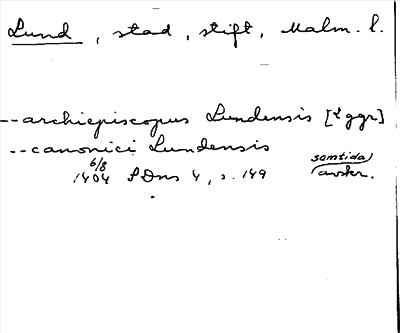 Lund, stad, stift, Malm. l.
--archiepiscopus Lundensis [2 ggr]
--canonici Lundensis
6/8 samtida
1404 SDns 4, s. 149 avskr.